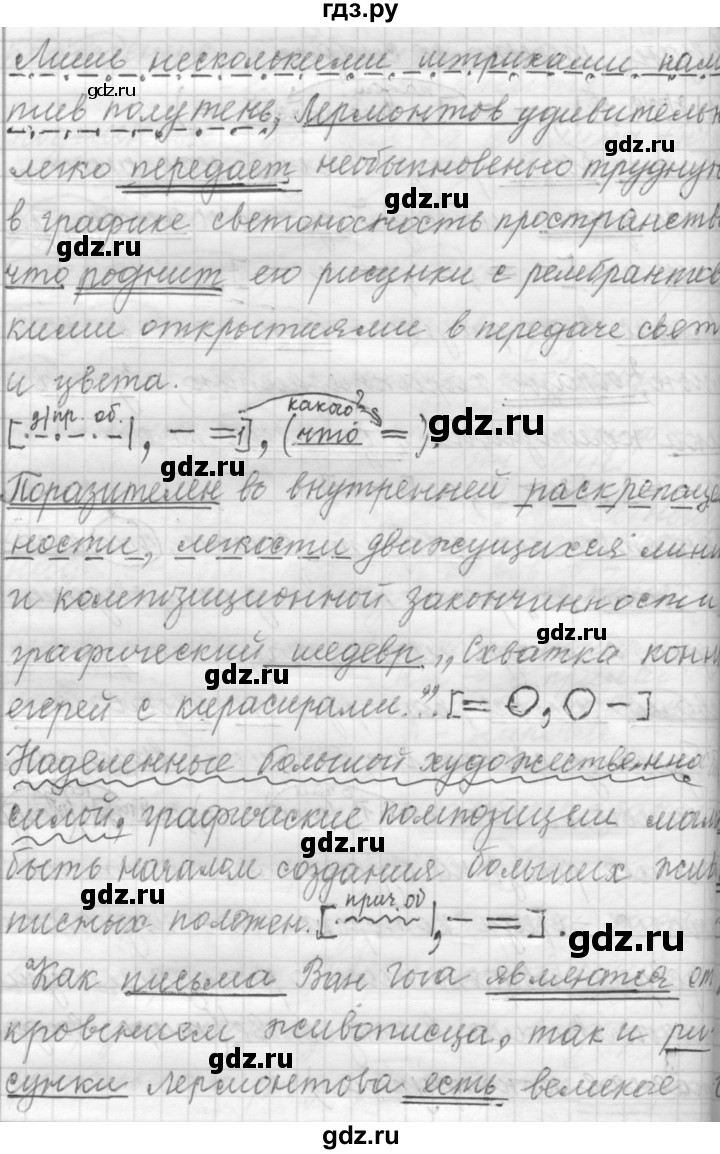 гдз.ру
Лишь несколькими штрихами нам
gdz.ru
пив полутень, Лермонтов удивительн
gdz.ru
легко передает необыкновенно трудную
gdz.ru
в графике светоносность пространств
gdz.ru
что роднит его рисунки с рембрантов
кими открытиями в передаче свет
и цвета.
д/пр. об. какого?
[ |, - =], (что =). gdz.ru
gdz.ru
Поразителен во внутренней раскрепаще
ности, легкости движущихся лини
и композиционной закончинности
gdz.ru
графический шедевр „Схватка конн
gdz.ru
егерей с кирасирами." [= О, О -]
Наделенные большой художественно
силой, графические композиции мог
gdz.ru
быть началом создания больших жив
gdz.ru
прич. об
писных положен. [ |, - =].
gdz.ru
Как письма Ван Гога являются от
кровением живописца, так и ри-
gdz.ru
сунки Лермонтова есть великое
gdz.ru
gdz.ru